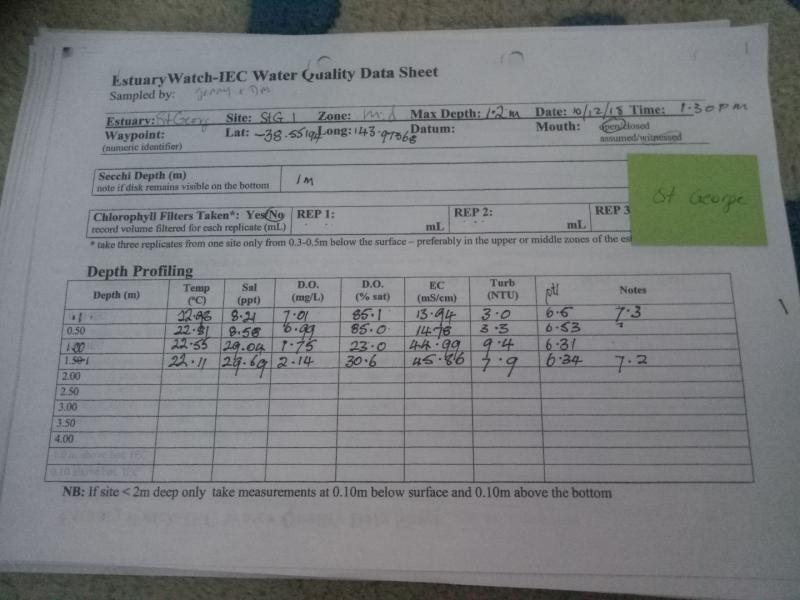 EstuaryWatch-IEC Water Quality Data Sheet
Sampled by: Jenny &
Estuary: St George Site: StG 1 Zone: Mid Max Depth: 1.2m Date: 10/12/18 Time: 1.30pm
Waypoint: Lat: -38.55194 Long: 143.97368 Datum: Mouth: open/closed
(numeric identifier) assumed/witnessed
Secchi Depth (m) 1m
note if disk remains visible on the bottom
St George
Chlorophyll Filters Taken*: Yes/No REP 1: REP 2: REP 3
record volume filtered for each replicate (mL) mL mL
* take three replicates from one site only from 0.3-0.5m below the surface – preferably in the upper or middle zones of the est
Depth Profiling
Depth (m) Temp (°C) Sal (ppt) D.O. (mg/L) D.O. (% sat) EC (mS/cm) Turb (NTU) pH Notes
.1 8.21 7.01 85.1 13.94 3.0 6.5 7.3
0.50 22.81 8.58 6.99 85.0 14.78 3.3 6.53
1.00 22.55 29.04 1.75 23.0 44.99 9.4 6.31
22.11 29.69 2.14 30.6 45.86 7.9 6.34 7.2
2.00
2.50
3.00
3.50
4.00
NB: If site < 2m deep only take measurements at 0.10m below surface and 0.10m above the bottom